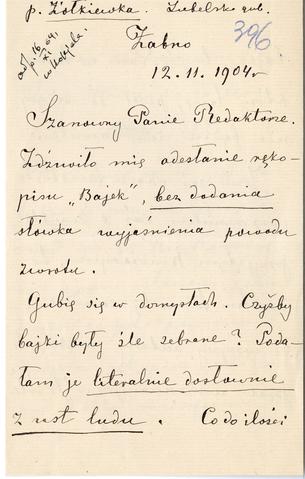 p. Żółkiewka. Lubelska gub.
396
Żabno
12. 11. 1904 r
Szanowny Panie Redaktorze.
Zdziwiło mię odesłanie ręko-
pisu „Bajek”, bez dodania
słówka wyjaśnienia powodu
zwrotu.
Gubię się w domysłach. Czyżby
bajki były źle zebrane? Poda-
łam je literalnie dosłownie
z ust ludu. Co do ilości